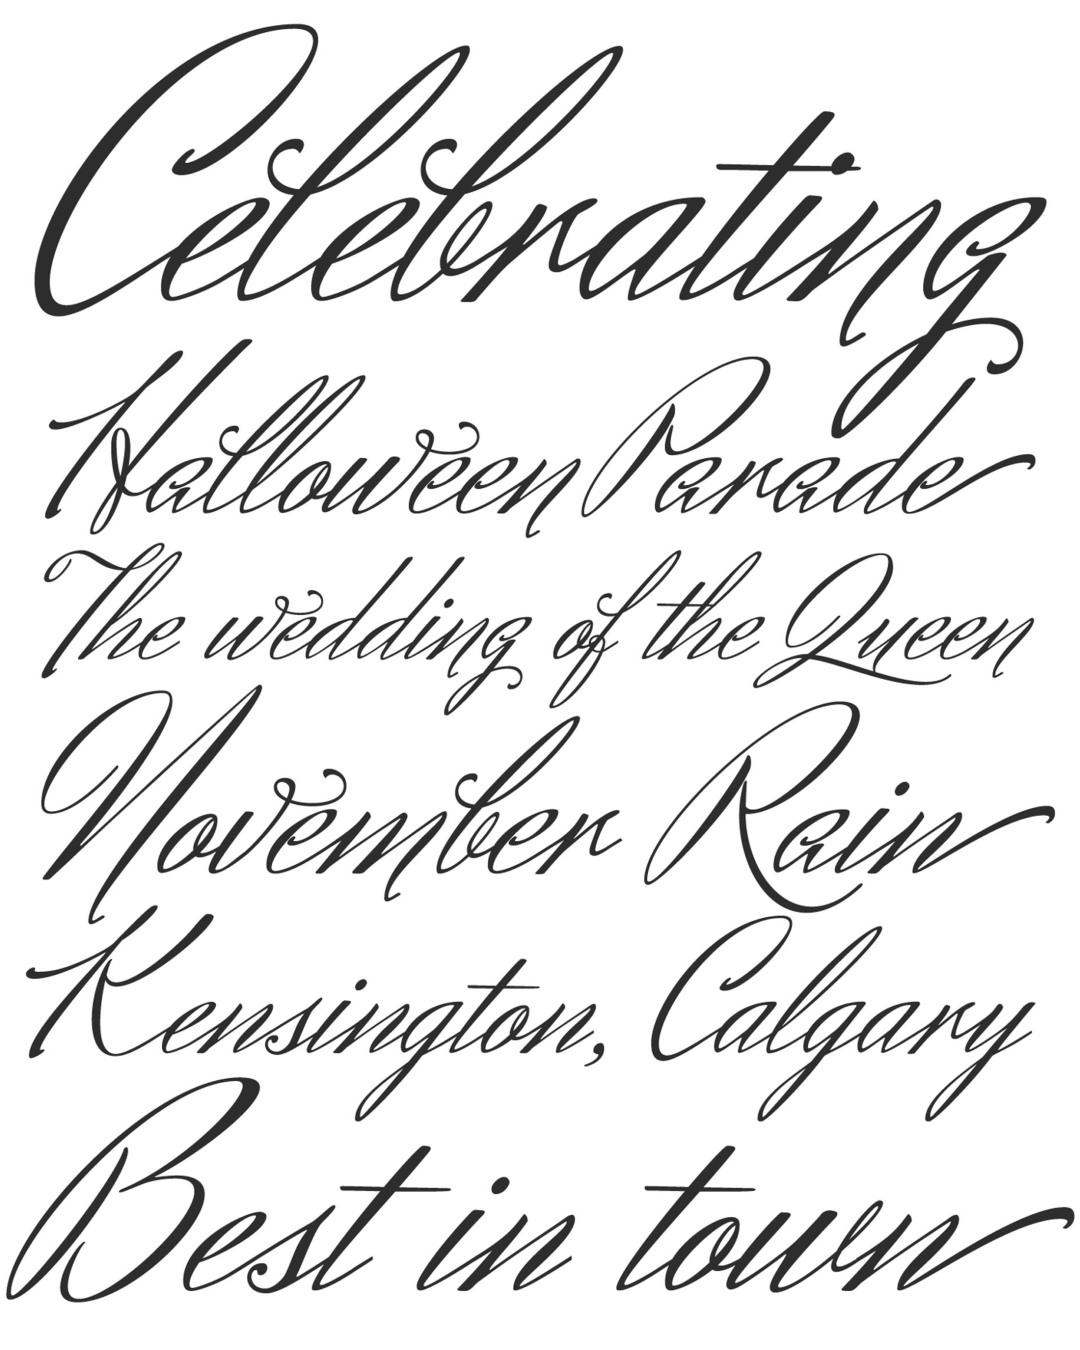 Celebrating
Halloween Parade
The wedding of the Queen
November Rain
Kensington, Calgary
Best in town